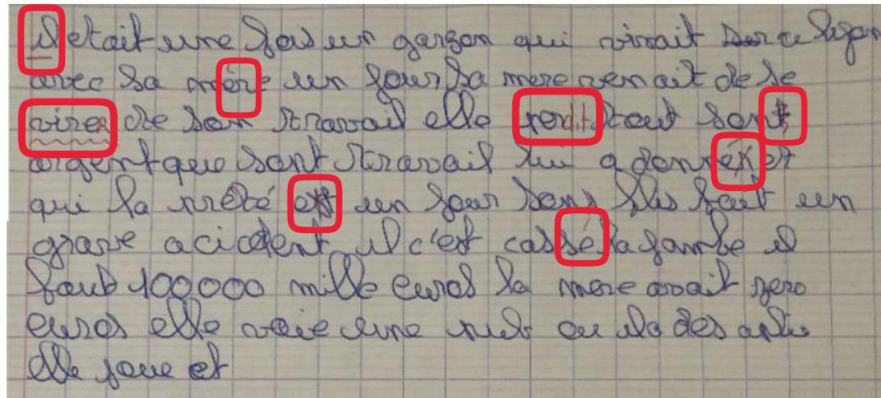 il etait une fois un garçon qui vivait
avec sa mère un jour sa mere venait de se
virer de son travail elle perdit tout sont
argent que sont travail lui a donnéx et
qui la prété et un jour sons fils fait un
grave acident il c'est cassé sa jambe il
faut 100000 mille euros la mere avait zero
euros elle voie une rue ou
elle joue et